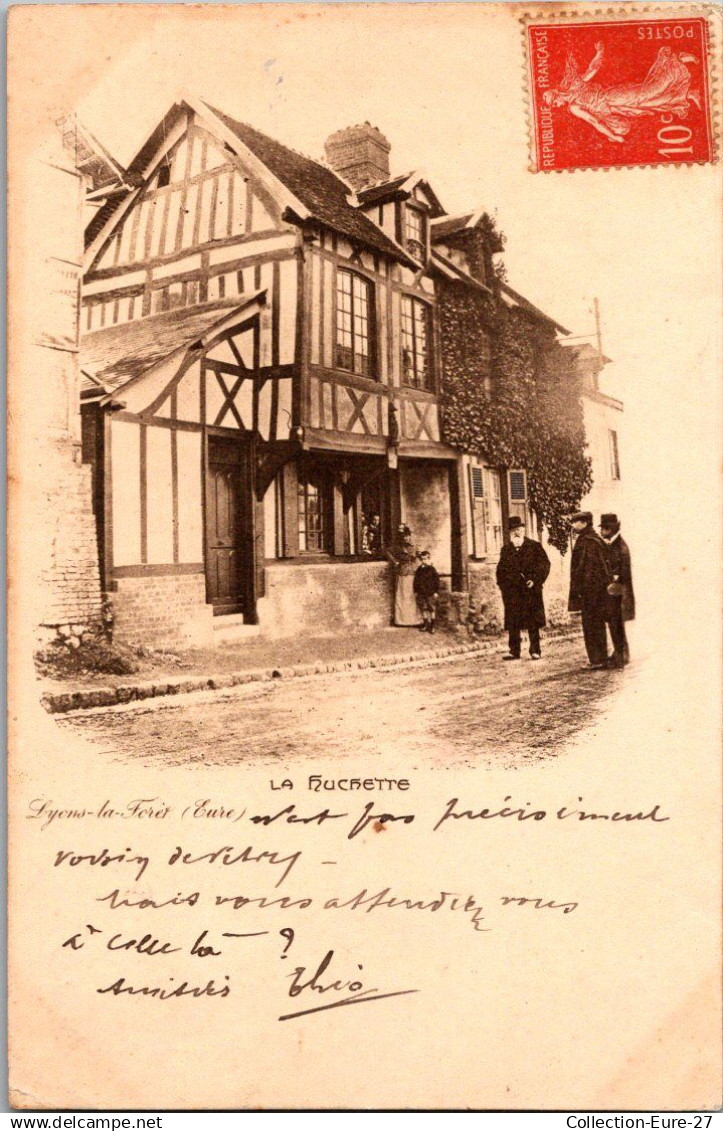 REPUBLIQUE FRANÇAISE
POSTES
10c
LA HUCHETTE
Lyons-la-Forêt (Eure) n'est pas précisément
voisin de Vitry –
Mais vous attendez vous
à celle là – ?
Amitiés Théo
Collection-Eure-27